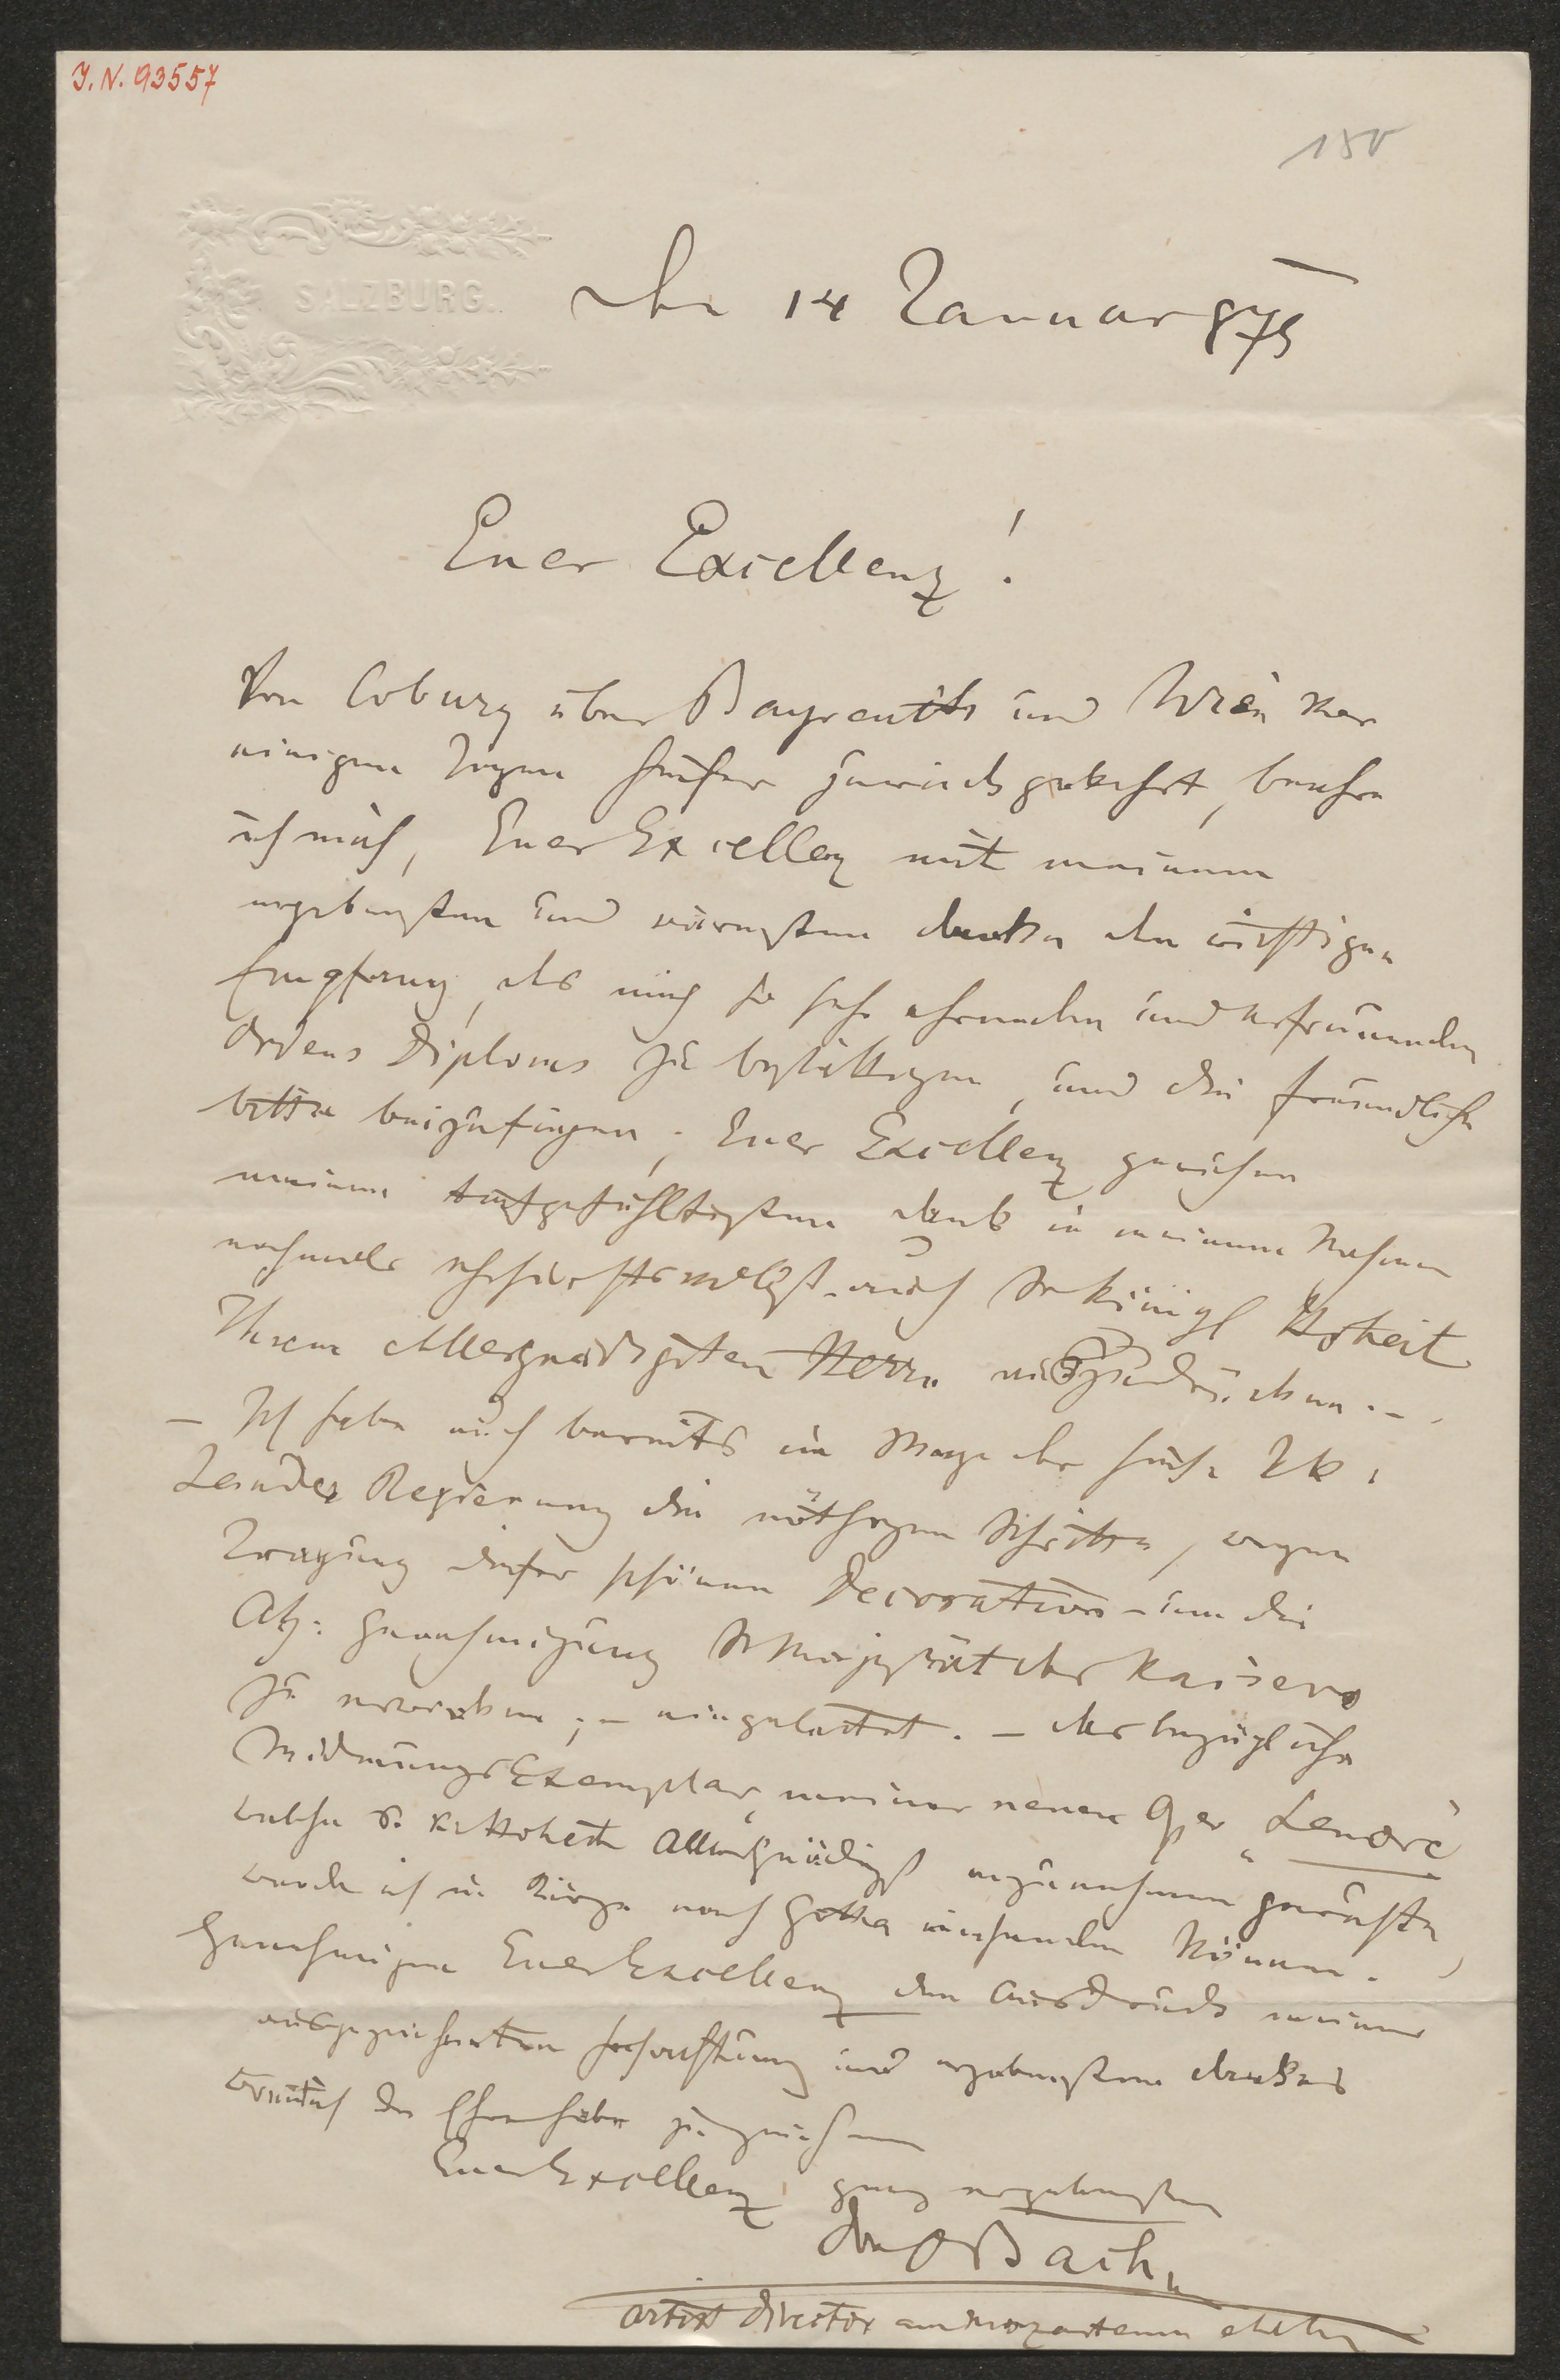 J. N. 93557
150
SALZBURG.
den 14 Januar 875
Euer Excellenz!
Von Coburg über Bayreuth und Wien vor
einigen Tagen hieher zurückgekehrt, beehre
ich mich, Euer Excellenz mit meinem
ergebensten und wärmsten Danke den richtigen
Empfang, des mich so sehr ehrenden und erfreuenden
Ordens Diploms zu bestättigen, und die freundliche
bitte beizufügen; Euer Excellenz geruhen
meinen tiefgefühltesten Dank in meinem Nahmen
nochmals auch Sr Königl Hoheit
Ihrem Allergnädigsten Herrn auszudrücken. –
– Ich habe auch bereits im Wege der hies. K. K.
Landes Regierung die nöthigen Schritte, wegen
Tragung dieser schönen Decoration – um die
Ah: Genehmigung Sr Majestät des Kaisers
zu erwirken; – eingeleitet. – das bezügliche
Widmungs Exemplar, meiner neuen Oper "Lenore
welche S. K. Hoheit Allergnädigst anzunehmen geruhte,
werde ich in Kürze nach Gotha einsenden können.
Genehmigen Euer Excellenz den Ausdruck meiner
ausgezeichneten Hochachtung und ergebensten Dankes
womit ich die Ehre habe zu zeichnen
Euer Excellenz ganz ergebenster
Dr O Bach
artist Director am Mozarteum